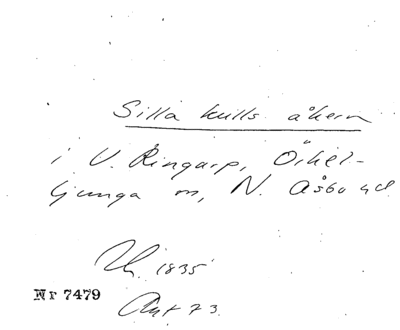 Silla kulls åkern
i V. Ringarp, Örkel-
ljunga sn, N. Åsbo hd
Uh. 1835
Nr 7479
Akt 73.